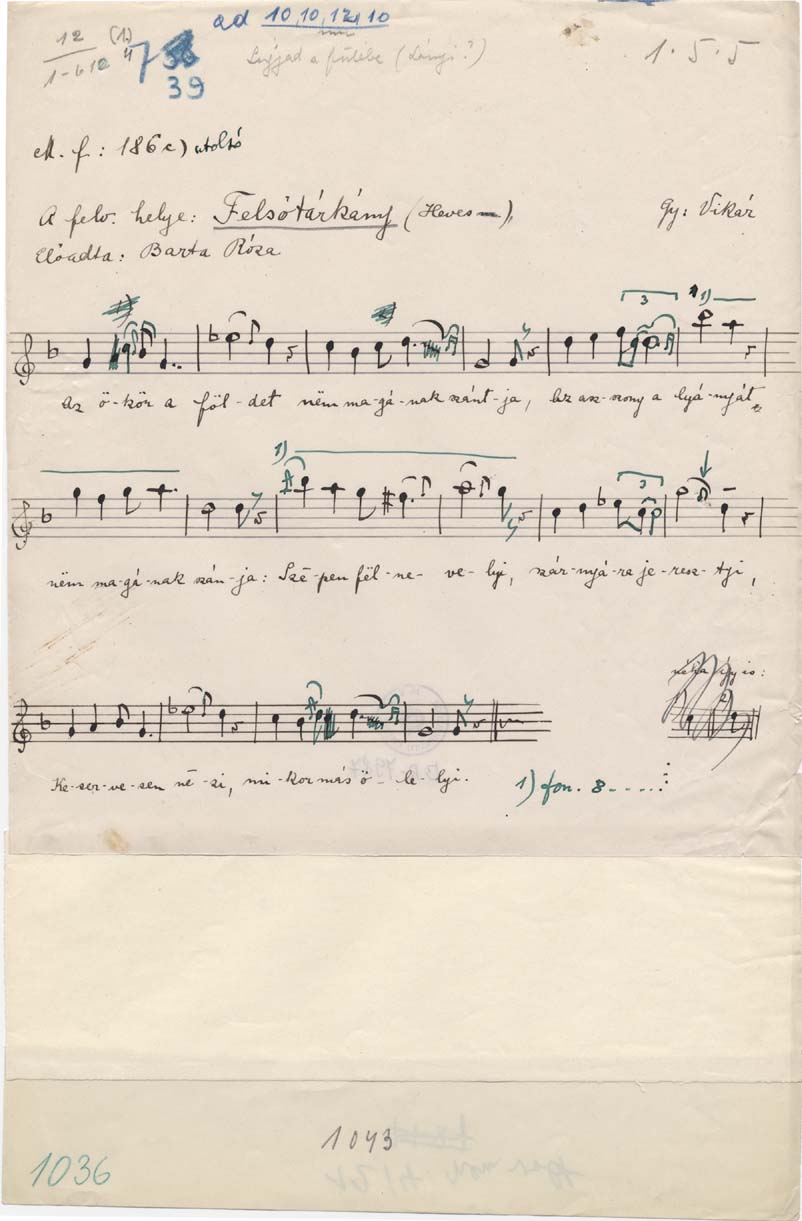 ad 10, 10, 12, 10
12 (1.)
1-b10 4
7
39
a fülébe (Lányi?)
1. 5. 5
M. f: 186 c) utolsó
A felv. helye: Felsőtárkány (Heves), Gy: Vikár
Előadta: Barta Róza
3 1)
Az ö-kör a föl-det nëm ma-gá-nak szánt-ja, Az asz-szony a lyá-nyát
1) 3
nëm ma-gá-nak szán-ja: Szé-pen föl-ne-ve-lyi, szár-nyá-ra je-resz-tyi,
Ke-ser-ve-sen né-zi, mi-kor más ö-le-lyi.
1) fon. 8
1043
1036